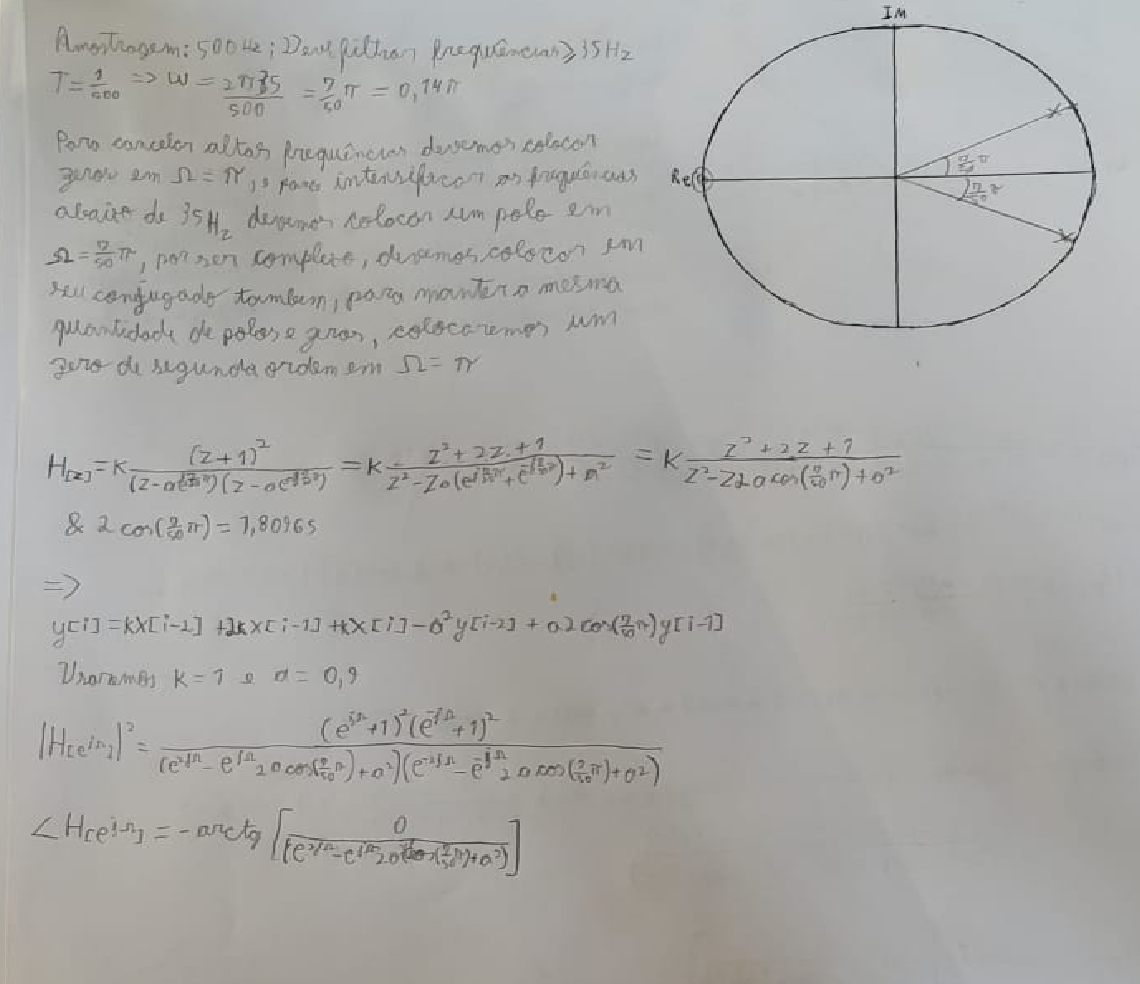 Amostragem: 500Hz; Deve filtrar frequências ≥ 35Hz
T = 1/500 => W = 2π35/500 = 7/50 π = 0,14π
Para cancelar altas frequências devemos colocar
zeros em Ω = π, e para intensificar as frequências
abaixo de 35Hz devemos colocar um polo em
Ω = 7/50 π, por ser complexo, devemos colocar em
seu conjugado tambem, para manter a mesma
quantidade de polos e zeros, colocaremos um
zero de segunda ordem em Ω = π
IM
Re
7/50 π
7/50 π
H[z] = K (z+1)² / (z-ae^(j7/50π))(z-ae^(-j7/50π)) = K z²+2z+1 / z²-za(e^(j7/50π)+e^(-j7/50π))+a² = K z²+2z+1 / z²-z2a cos(7/50 π)+a²
& 2 cos(7/50 π) = 1,80965
=>
y[i] = kx[i-2] + 2kx[i-1] + kx[i] - a²y[i-2] + a2cos(7/50 π)y[i-1]
Usaremos k = 1 e a = 0,9
|H[e^(jΩ)]|² = (e^(jΩ)+1)²(e^(-jΩ)+1)² / (e^(2jΩ) - e^(jΩ)2a cos(7/50 π)+a²)(e^(-2jΩ) - e^(-jΩ)2a cos(7/50 π)+a²)
∠H[e^(jΩ)] = -arctg [0 / (e^(2jΩ) - e^(jΩ)2a cos(7/50 π)+a²)]